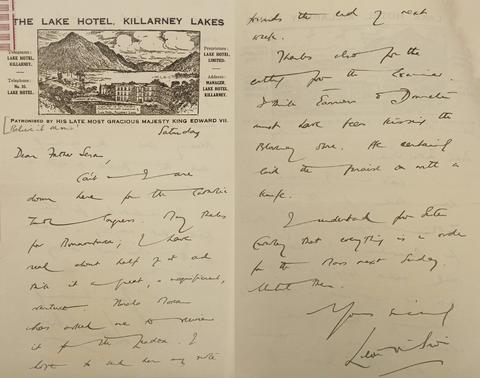 THE LAKE HOTEL, KILLARNEY LAKES
Telegrams:
LAKE HOTEL,
KILLARNEY.
Telephone:
No. 35.
LAKE HOTEL.
Proprietors:
LAKE HOTEL,
LIMITED.
Address:
MANAGER,
LAKE HOTEL,
KILLARNEY.
PATRONISED BY HIS LATE MOST GRACIOUS MAJESTY KING EDWARD VII.
[Believe it or not!
Saturday
Dear Father Senan,
I are
down here for the Catholic
Truth Congress. Many thanks
for Bonaventura; I have
read about half of it and
think it a great, a magnificent,
venture.
has asked me to review
it for the Leader. I
hope to send him my note
towards the end of next
week.
Thanks also for the
cutting for the Examiner.
I think Eamonn &
must have been kissing the
Blarney Stone. He certainly
laid the praise on with a
knife.
I understand from Sister
that everything is in order
for the Mass next Sunday.
Until then.
Yours sincerely